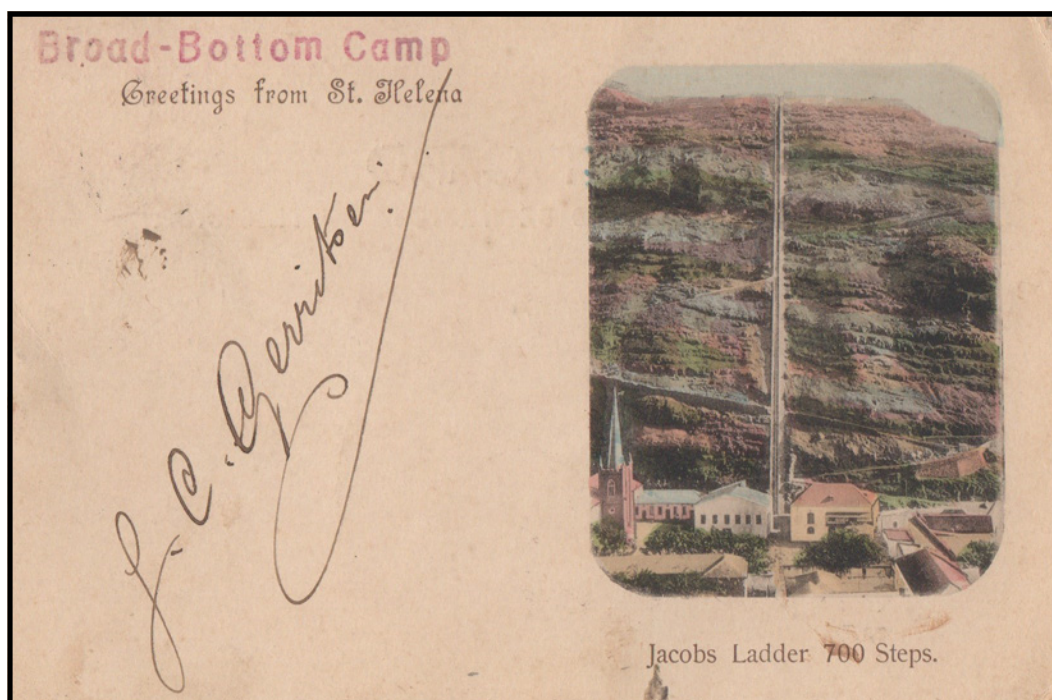 Broad-Bottom Camp
Greetings from St. Helena
J. C. Gerritsen.
Jacobs Ladder 700 Steps.